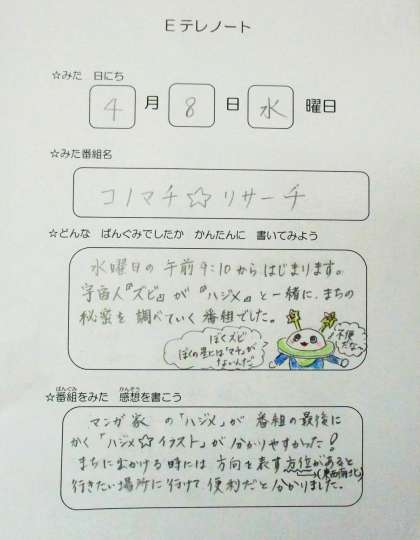 Eテレノート
☆みた 日にち
4 月 8 日 水 曜日
☆みた番組名
コノマチ☆リサーチ
☆どんな ばんぐみでしたか かんたんに 書いてみよう
水曜日の午前9:10からはじまります。
宇宙人『ズビ』が『ハジメ』と一緒に、まちの
秘密を調べていく番組でした。
ぼくズビ
ぼくの星には「マチ」が
ないんだ
不便
だな〜
☆番組をみた 感想を書こう
ばんぐみ かんそう
マンガ家の『ハジメ』が番組の最後に
かく「ハジメ☆イラスト」が分かりやすかった!
まちに出かける時には方向を表す方位があると
(東西南北)
行きたい場所に行けて、便利だと分かりました。